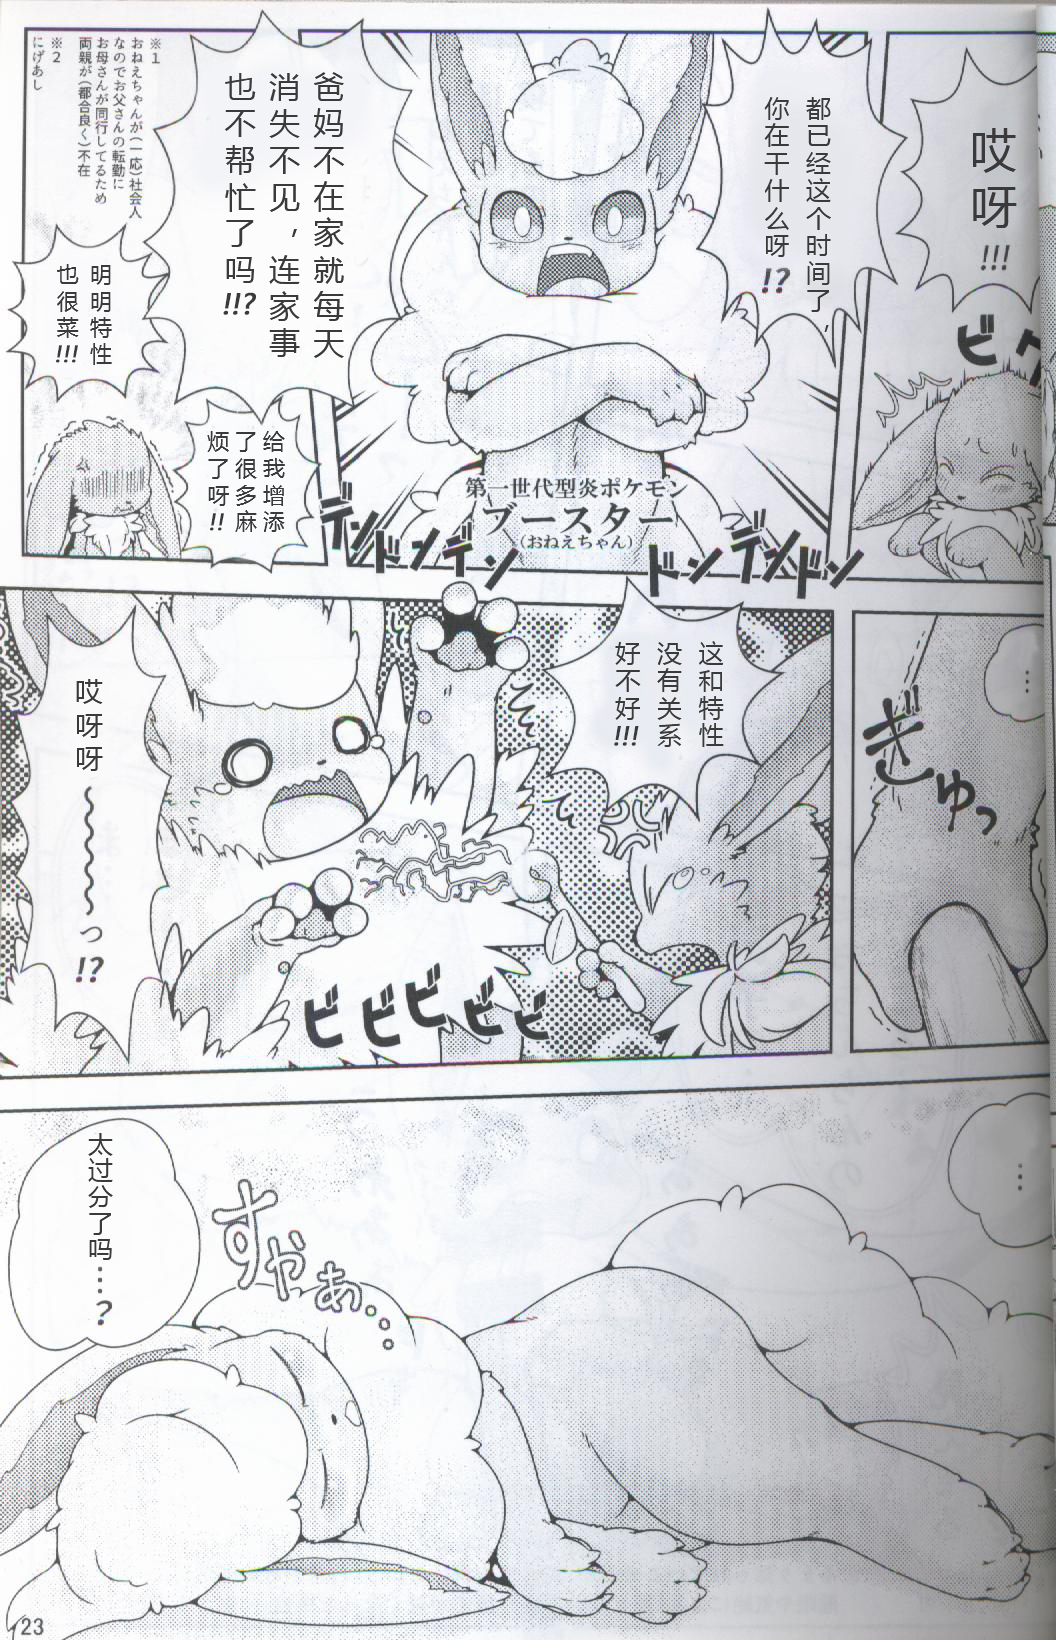 哎呀!!!
ビク
都已经这个时间了，
你在干什么呀!?
爸妈不在家就每天
消失不见，连家事
也不帮忙了吗!!?
※1
おねえちゃんが(一応)社会人
なのでお父さんの転勤に
お母さんが同行してるため
両親が(都合良く)不在
※2
にげあし
明明特性
也很菜!!!
给我增添
了很多麻
烦了呀!!
第一世代型炎ポケモン
ブースター
(おねえちゃん)
デンドンデン
ドンデンドン
…
ぎゅっ
这和特性
没有关系
好不好!!!
哎呀呀～～～～～っ!?
ビビビビビ
…
太过分了吗…?
すやぁ…
23